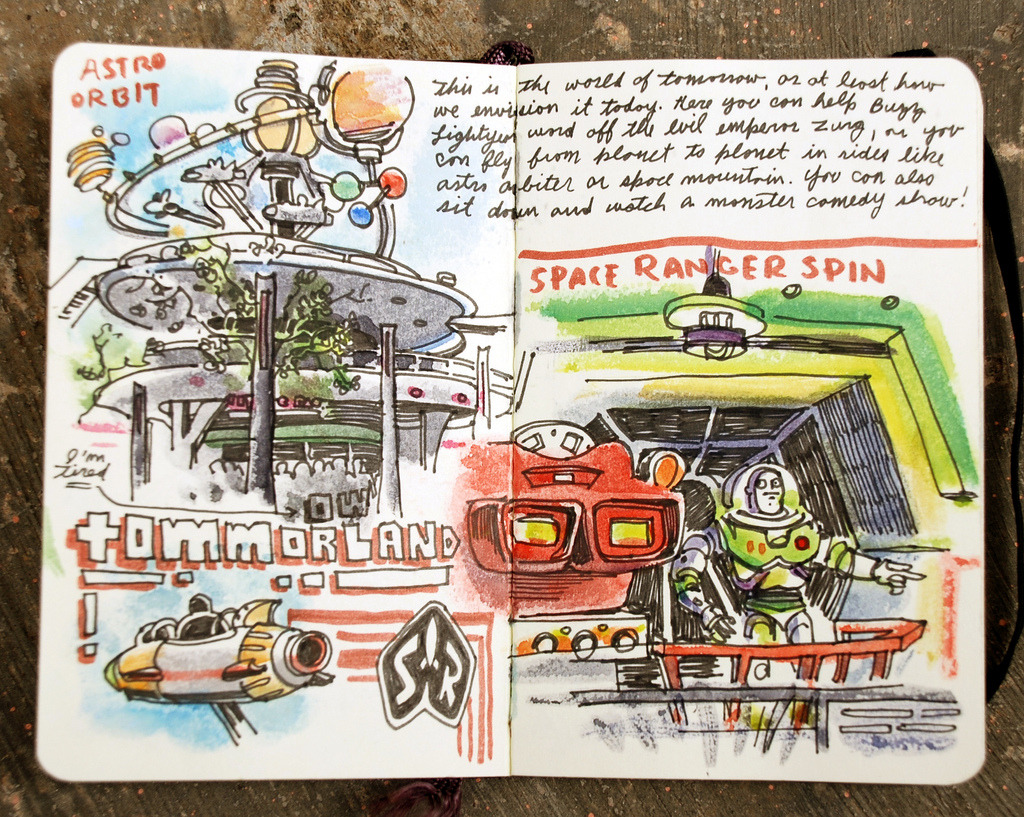 ASTRO
ORBIT
This is the world of tomorrow, or at least how
we envision it today. Here you can help Buzz
Lightyear ward off the evil emperor Zurg, or you
can fly from planet to planet in rides like
astro orbiter or space mountain. You can also
sit down and watch a monster comedy show!
SPACE RANGER SPIN
I'm
tired
OW
tOMMORLAND
!
SR